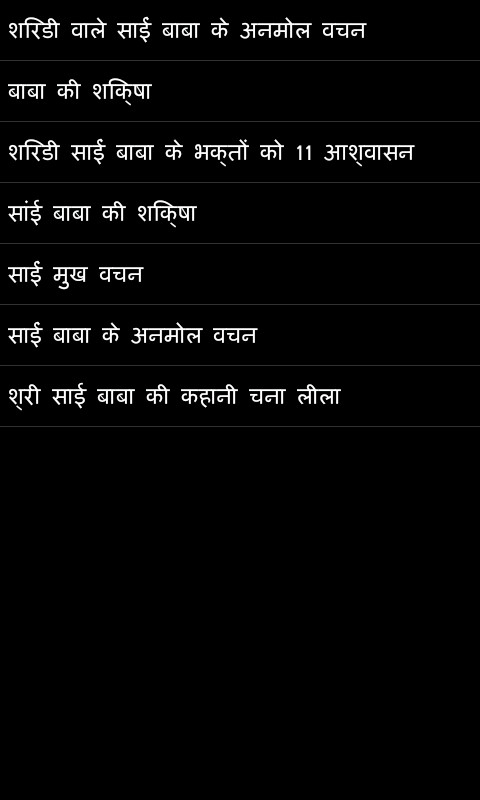 शिरडी वाले साईं बाबा के अनमोल वचन
बाबा की शिक्षा
शिरडी साई बाबा के भक्तों को 11 आश्वासन
सांई बाबा की शिक्षा
साईं मुख वचन
साईं बाबा के अनमोल वचन
श्री साई बाबा की कहानी चना लीला